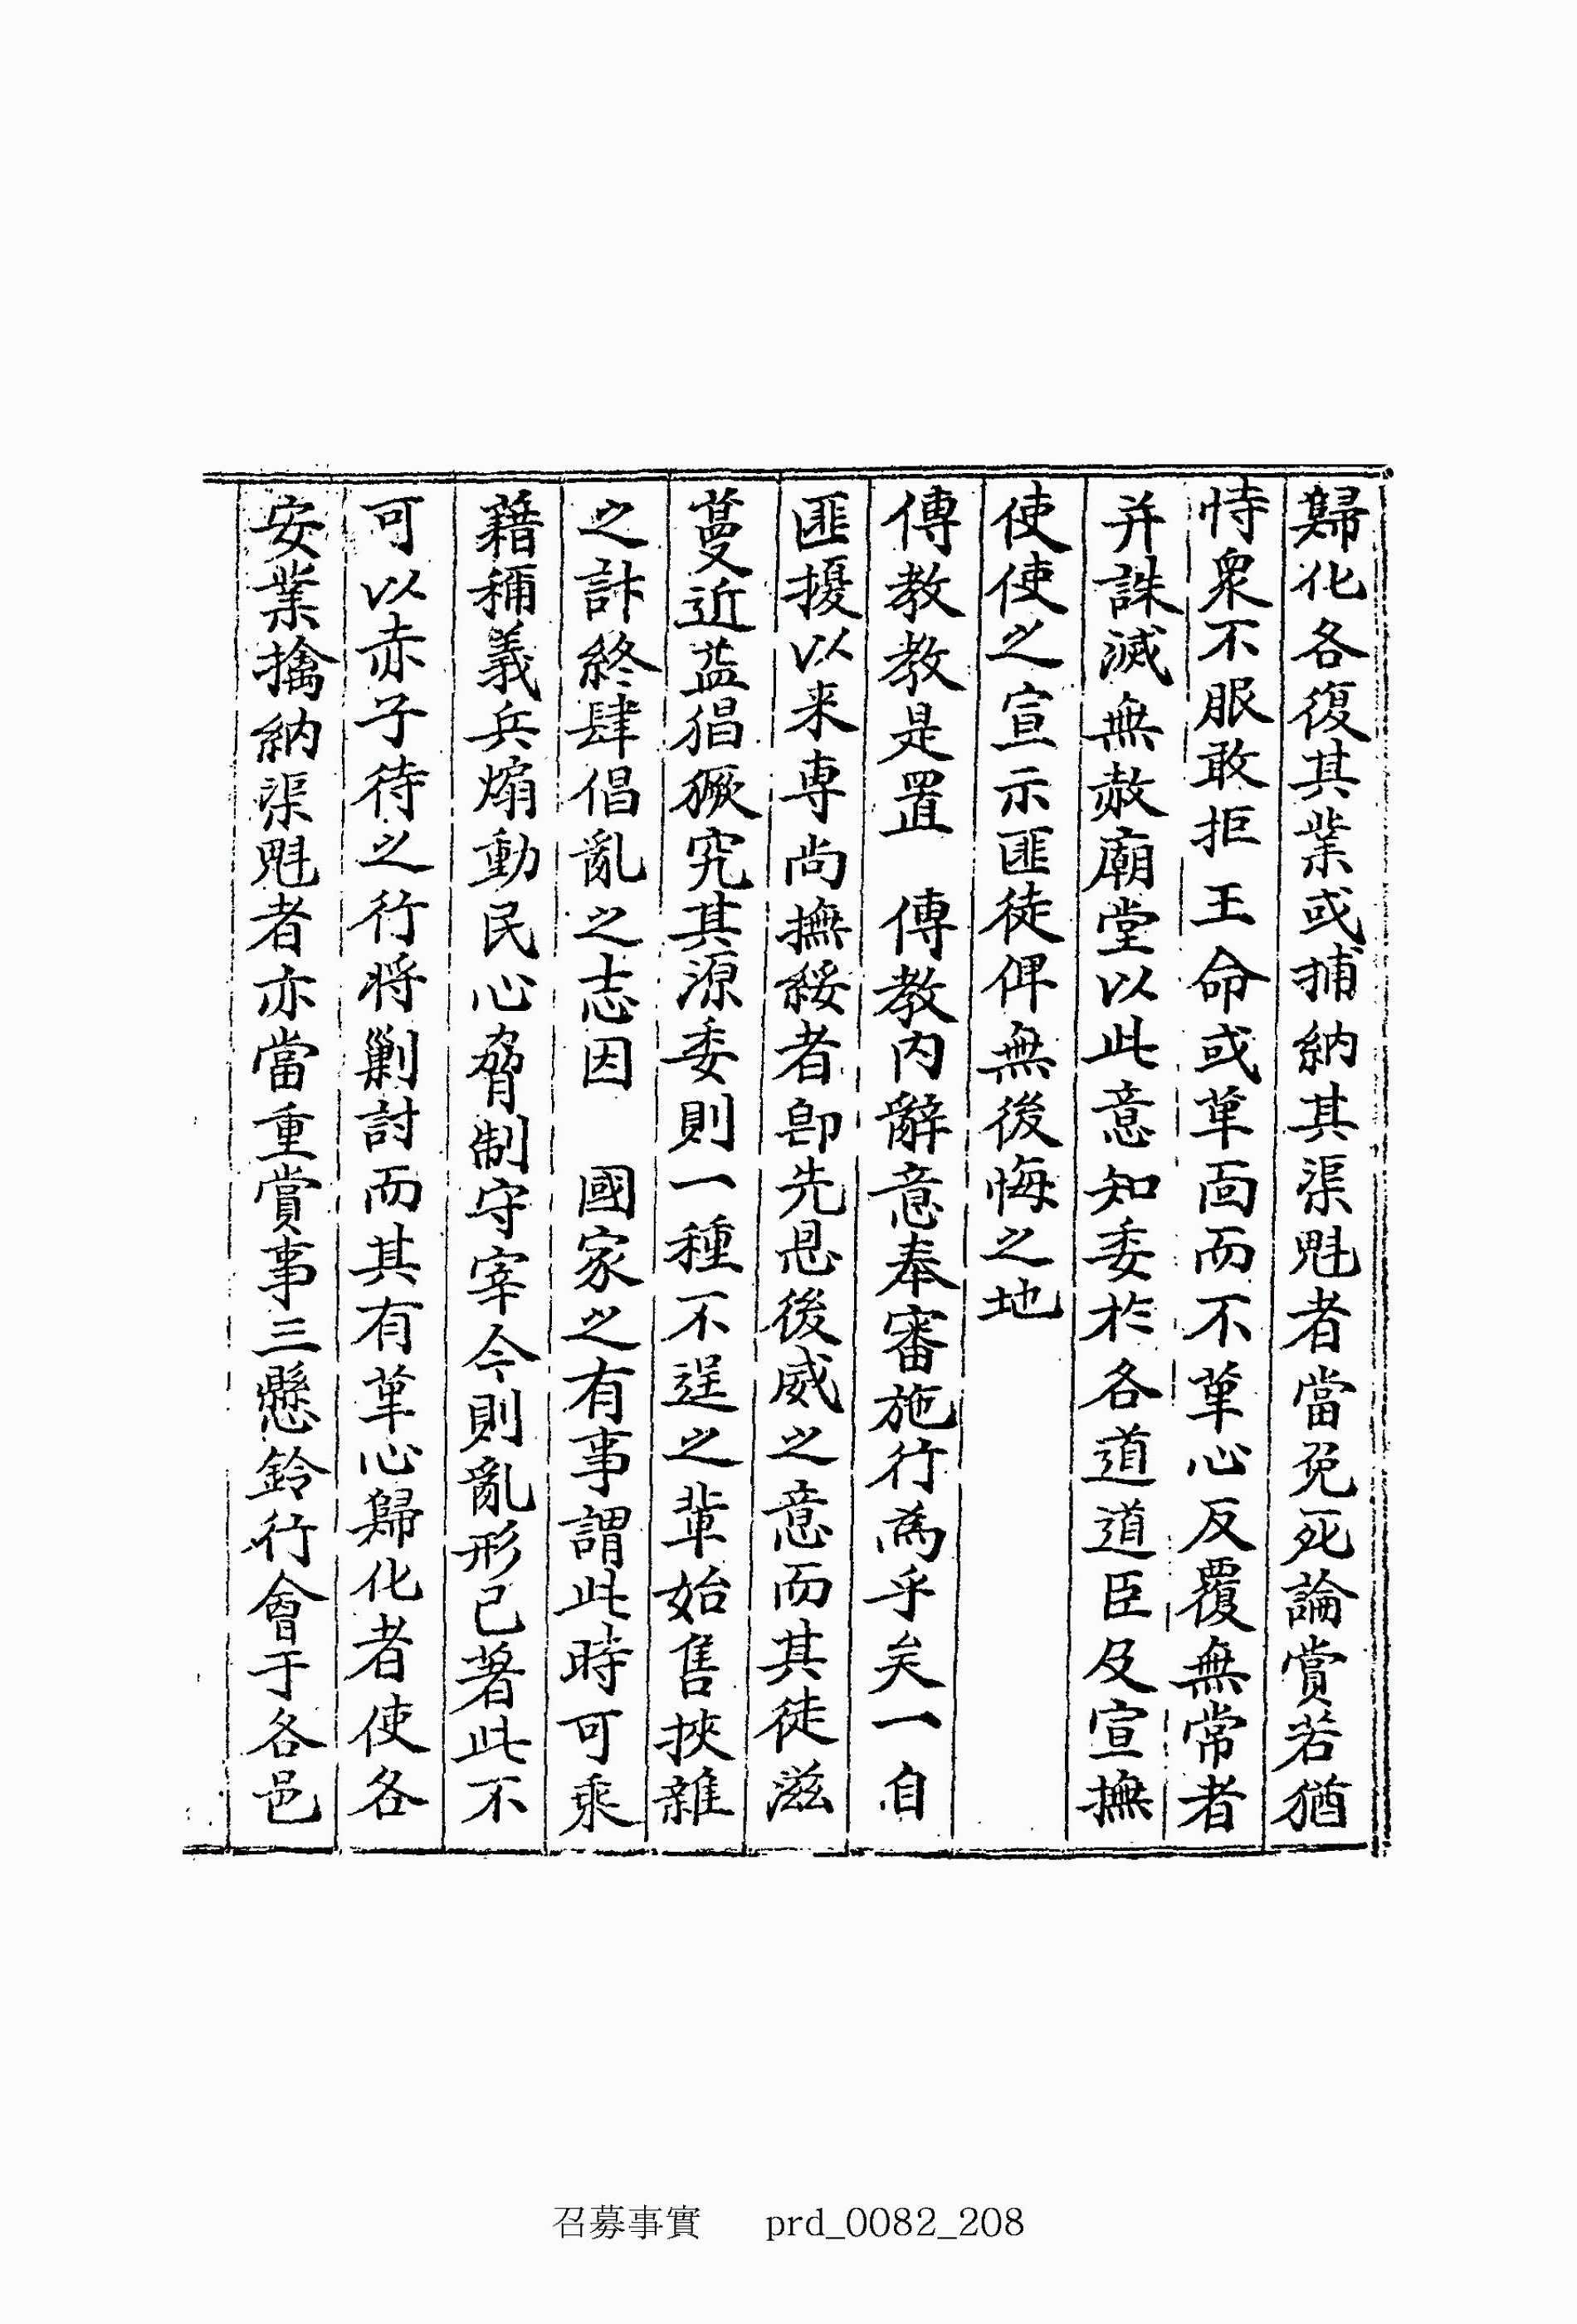 歸化各復其業或捕納其渠魁者當免死論賞若猶
恃衆不服敢拒王命或革面而不革心反覆無常者
并誅滅無赦廟堂以此意知委於各道道臣及宣撫
使使之宣示匪徒俾無後悔之地
傳教教是置　傳教內辭意奉審施行爲乎矣一自
匪擾以来專尚撫綏者卽先恩後威之意而其徒滋
蔓近益猖獗究其源委則一種不逞之輩始售挾雜
之計終肆倡亂之志因　國家之有事謂此時可乘
藉稱義兵煽動民心脅制守宰今則亂形已著此不
可以赤子待之行将剿討而其有革心歸化者使各
安業擒納渠魁者亦當重賞事三懸鈴行會于各邑
召募事實　prd_0082_208